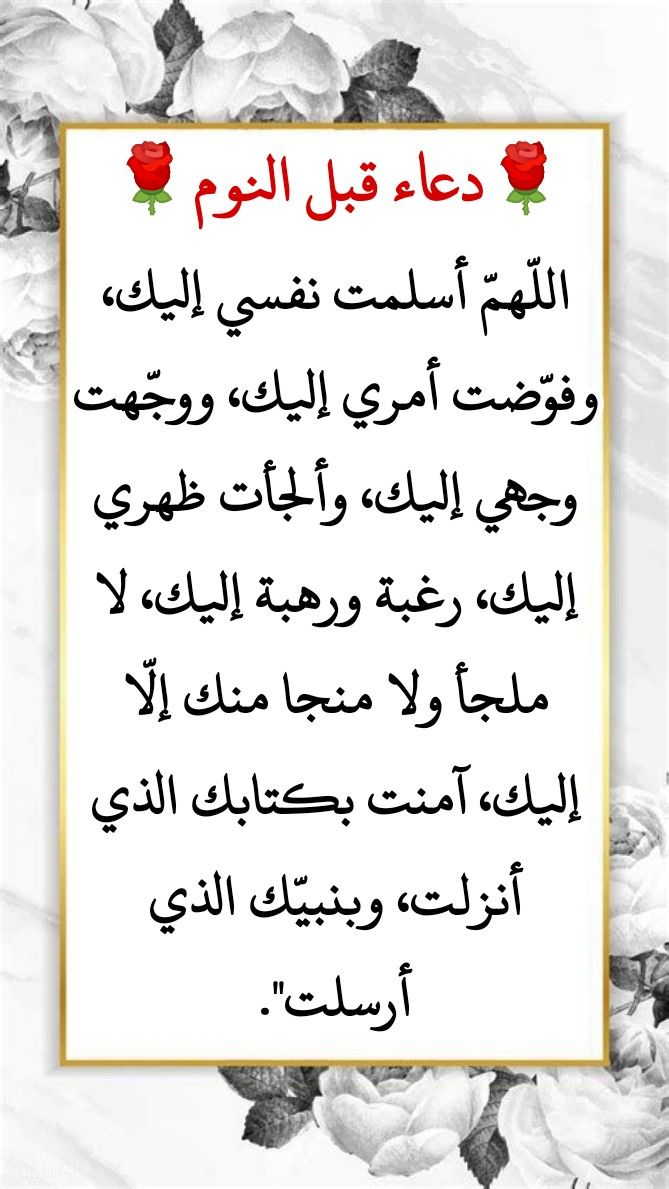 🌹دعاء قبل النوم🌹
اللّهمّ أسلمت نفسي إليك،
وفوّضت أمري إليك، ووجّهت
وجهي إليك، وألجأت ظهري
إليك، رغبة ورهبة إليك، لا
ملجأ ولا منجا منك إلّا
إليك، آمنت بكتابك الذي
أنزلت، وبنبيّك الذي
أرسلت".